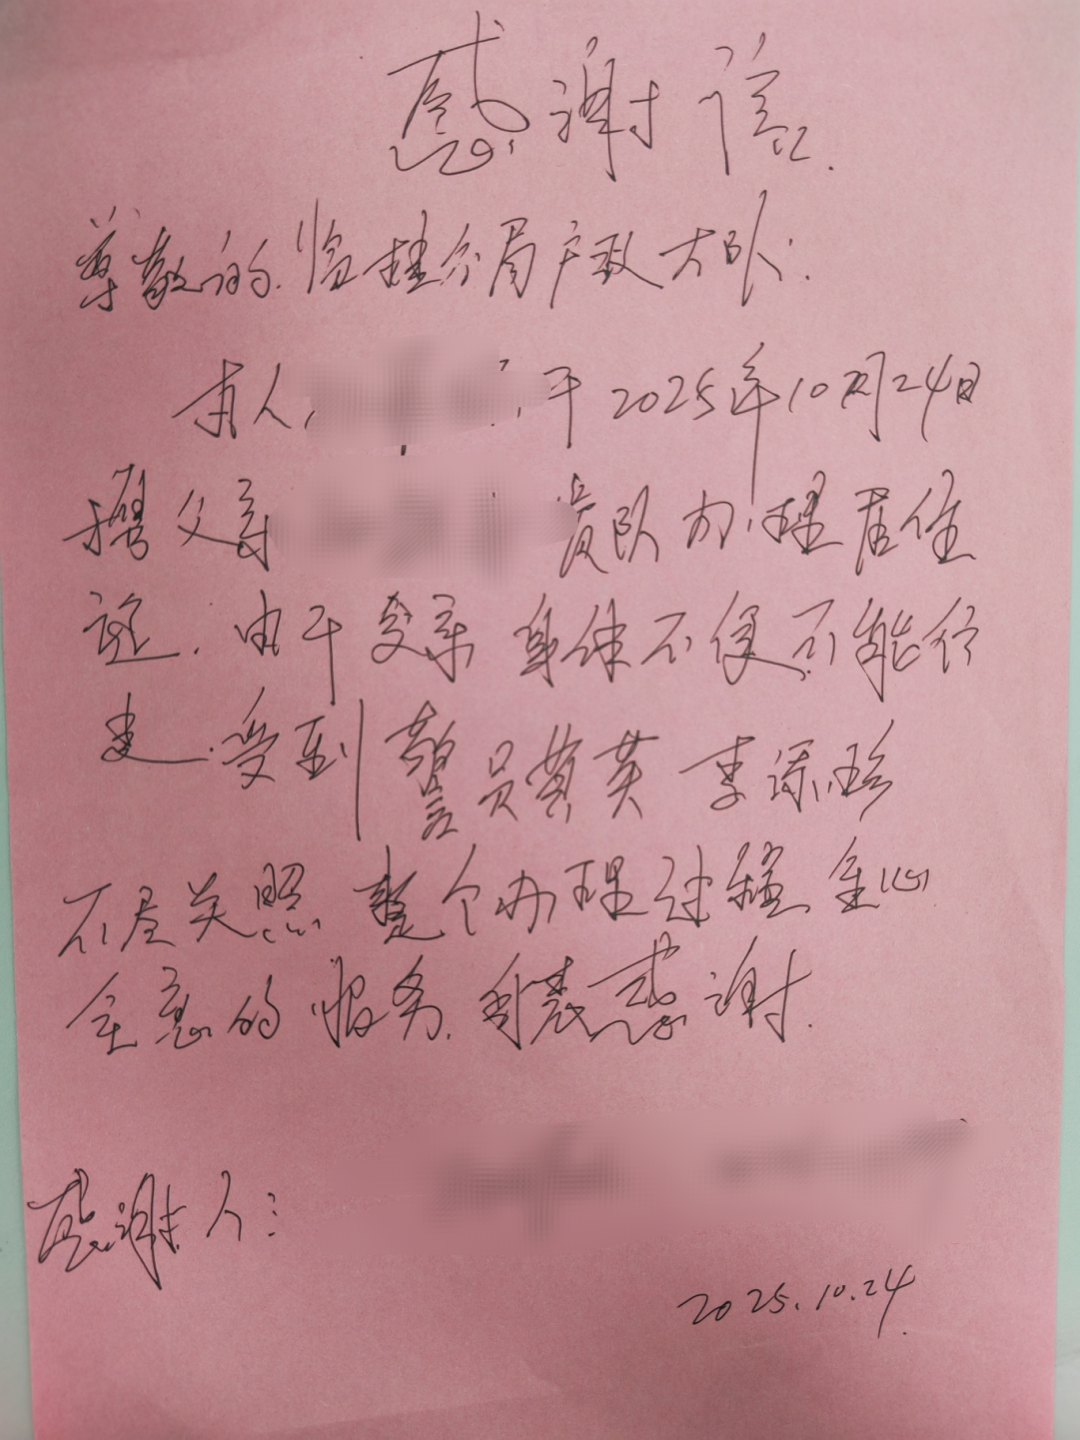 感谢信.
尊敬的临桂分局户政大队:
本人 于2025年10月24日
携父亲 贵队办理居住
证.由于父亲身体不便不能行
走.受到警员黄英 李添珍
不尽关照 整个办理过程全心
全意的服务.利表感谢.
感谢人:
2025.10.24